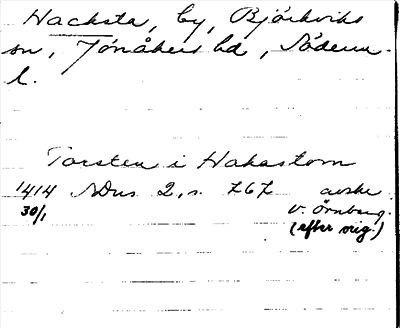 Hacksta, by, Björkviks
sn, Jönåkers hd, Söderm.
l.
Torsten i Hakastom
1414 SDns 2, s. 767 avskr.
30/1 v. Örnberg.
(efter orig.)